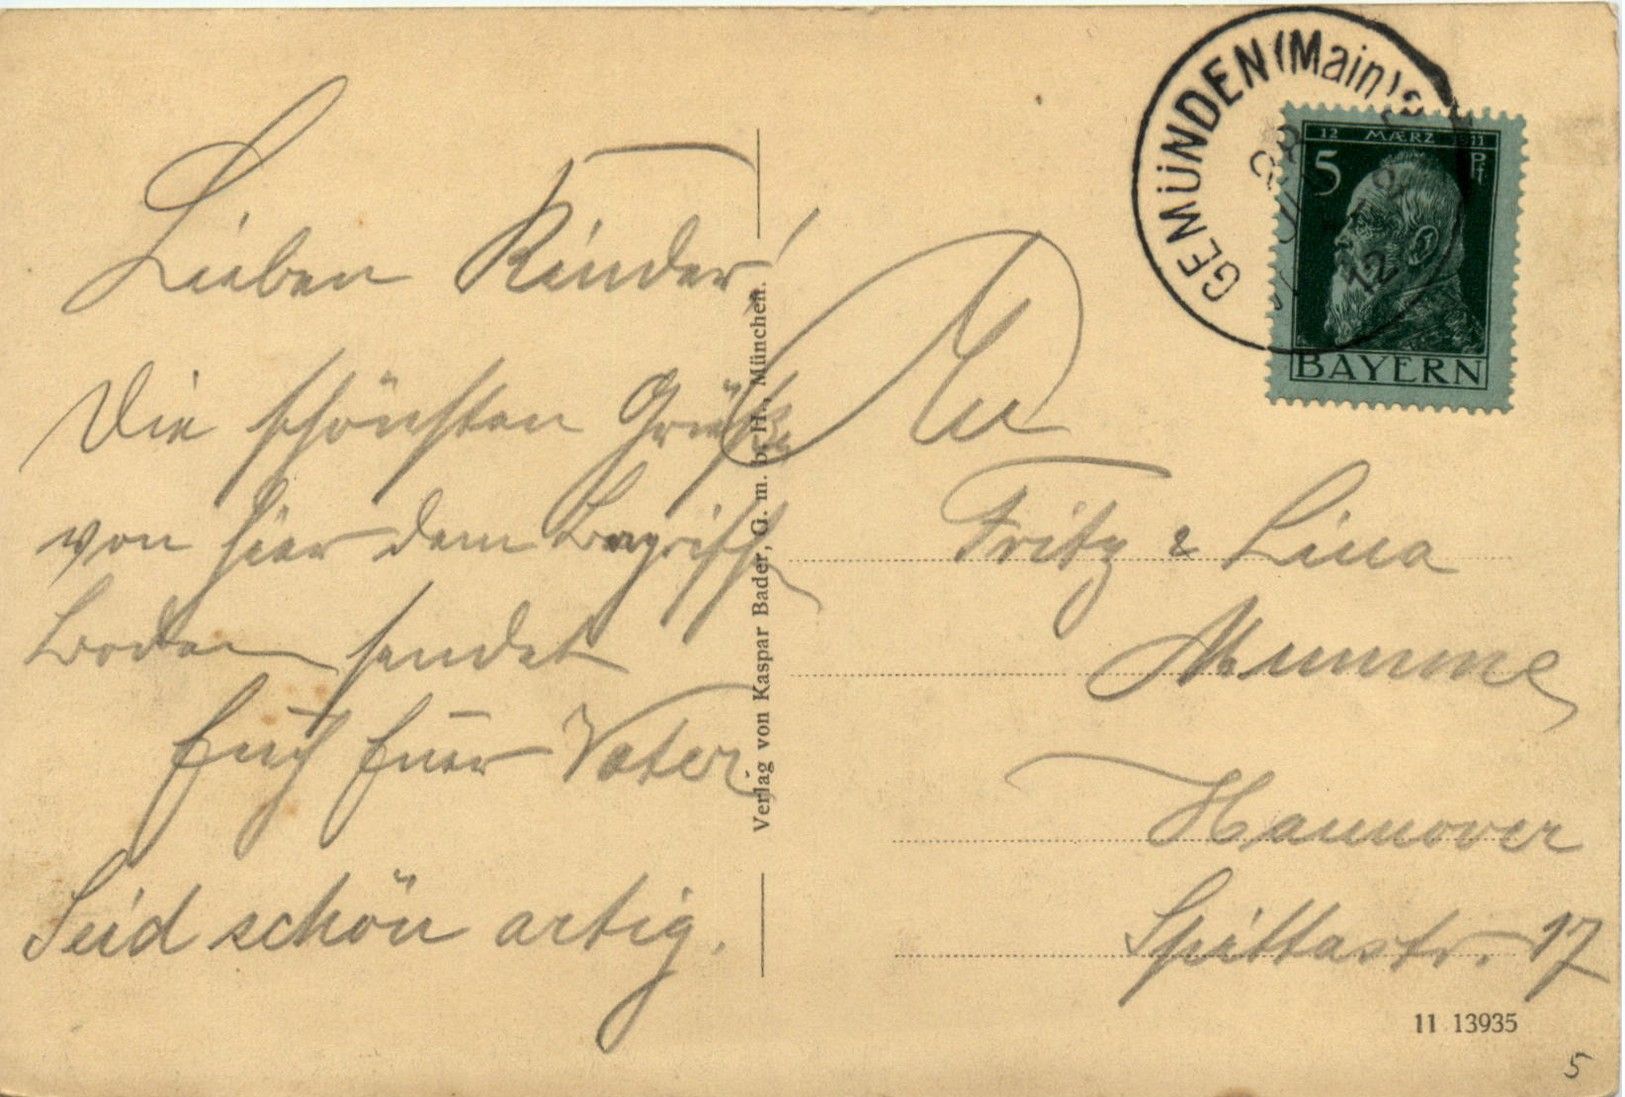 Lieben Kinder!
Die schönsten Grüße
von hier dem Bayrisch
Boden sendet
Euch Euer Vater
Seid schön artig.
Verlag von Kaspar Bader, G. m. b. H., München.
GEMÜNDEN (Main)
12
12 MÆRZ 1911
5 Pf
BAYERN
An
Fritz & Lina
Mumme
Hannover
Spittastr. 17
11 13935
5